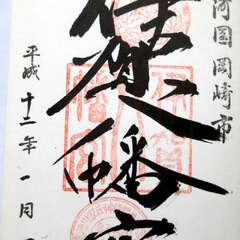 河国岡崎市
伊賀八幡宮
平成十二年一月